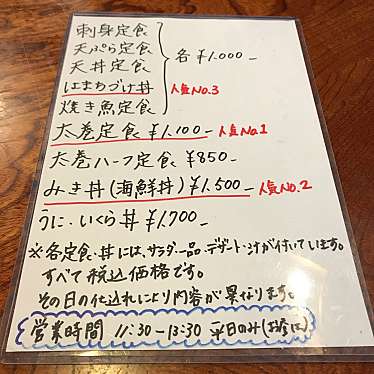 刺身定食
天ぷら定食
天丼定食
はまちづけ丼 人気No.3
焼き魚定食
各¥1.000ー
太巻定食 ¥1.100ー 人気No.1
太巻ハーフ定食 ¥850ー
みき丼(海鮮丼)¥1.500ー 人気No.2
うに・いくら丼 ¥1.700ー
※各定食・丼には、サラダ・一品・デザート・汁が付いています。
すべて税込価格です。
その日の仕込れにより内容が異なります。
営業時間 11:30ー13:30 平日のみ(お昼)